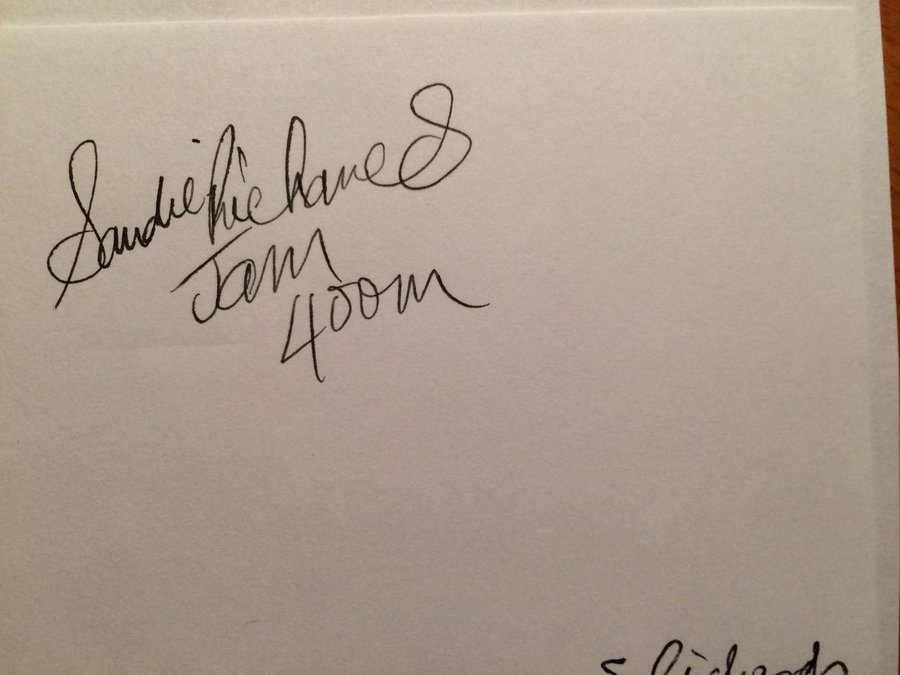 Sandie Richards
Jam
400m
S Richards